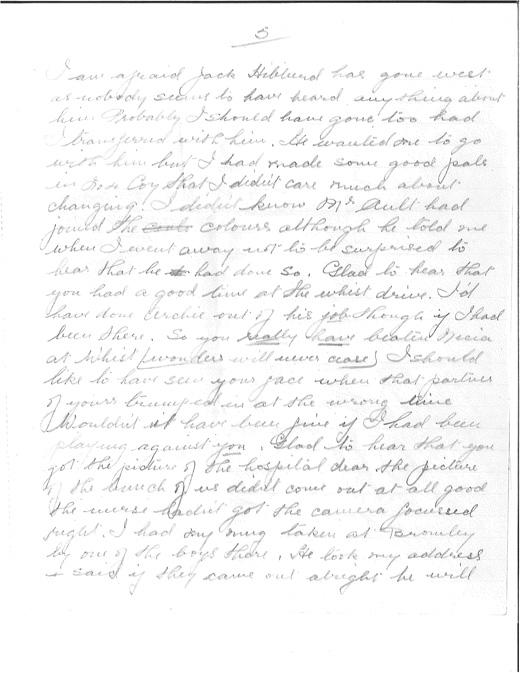 5
I am afraid Jack has gone west
as nobody seems to have heard anything about
him Probably I should have gone too had
I transferred with him. He wanted me to go
with him but I had made some good pals
in Coy that I didn't care much about
changing. I didn't know Mr Ault had
joined the colours although he told me
when I went away not to be surprised to
hear that he had done so. Glad to hear that
you had a good time at the whist drive. I'd
have done Archie out of his job though if I had
been there. So you really have beaten
at Whist (wonders will never cease) I should
like to have seen your face when that partner
of yours trumped in at the wrong time
Wouldn't it have been fine if I had been
playing against you. Glad to hear that you
got the picture of the hospital dear the picture
of the bunch of us didn't come out at all good
the nurse hadn't got the camera focussed
right. I had my mug taken at Bromley
by one of the boys there. He took my address
+ said if they came out alright he will